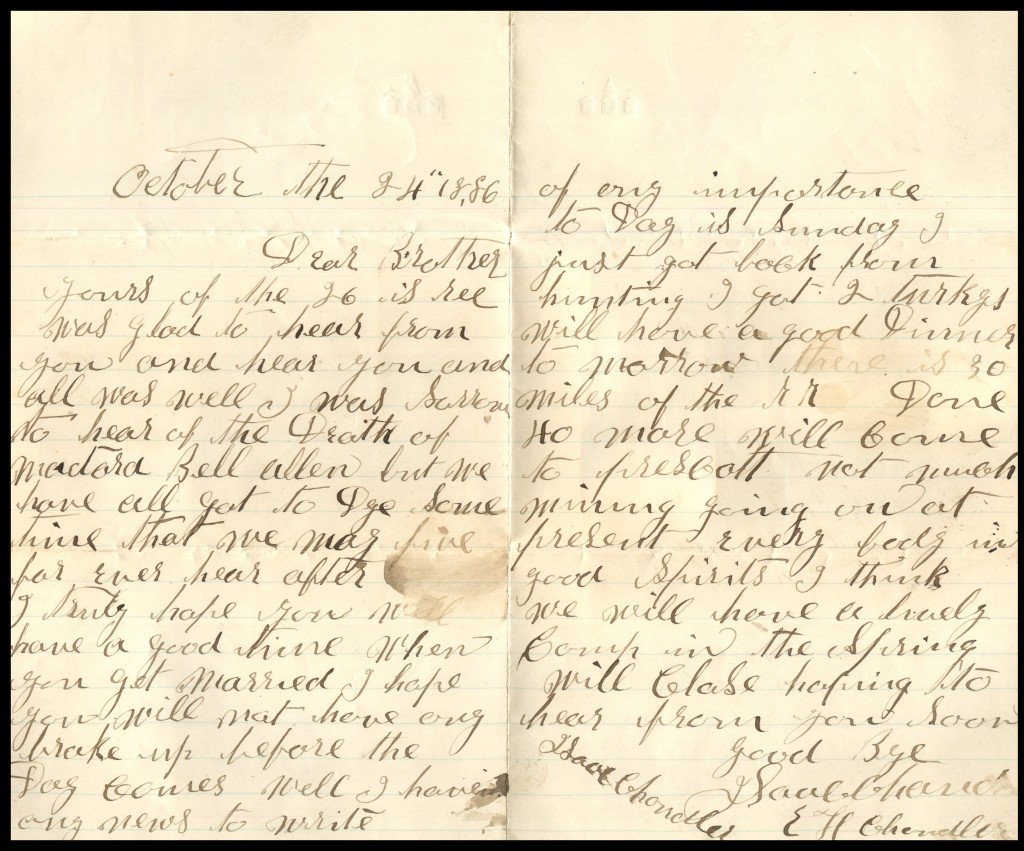 October the 24" 18,86
Dear Brother
yours of the 26 is rec
was glad to hear from
you and hear you and
all was well I was Sorrow
to hear of the Death of
Bell allen but we
have all got to Dye Some
time that we may live
for ever hear after
I truly hope you will
have a good time when
you get married I hope
you will not have eny
brake up before the
Day Comes well I havent
eny news to write
of eny importance
to Day is Sunday I
just got back from
hunting I got 2 turkys
will have a good Dinner
to morrow there is 30
miles of the RR Done
40 more will Come
to prescott not much
mining going on at
present every body in
good Spirits I think
we will have a lively
Camp in the Spring
will Close hoping to
hear from you soon
good Bye
Isaac Chandler
Isaac Chandler
E H Chandler